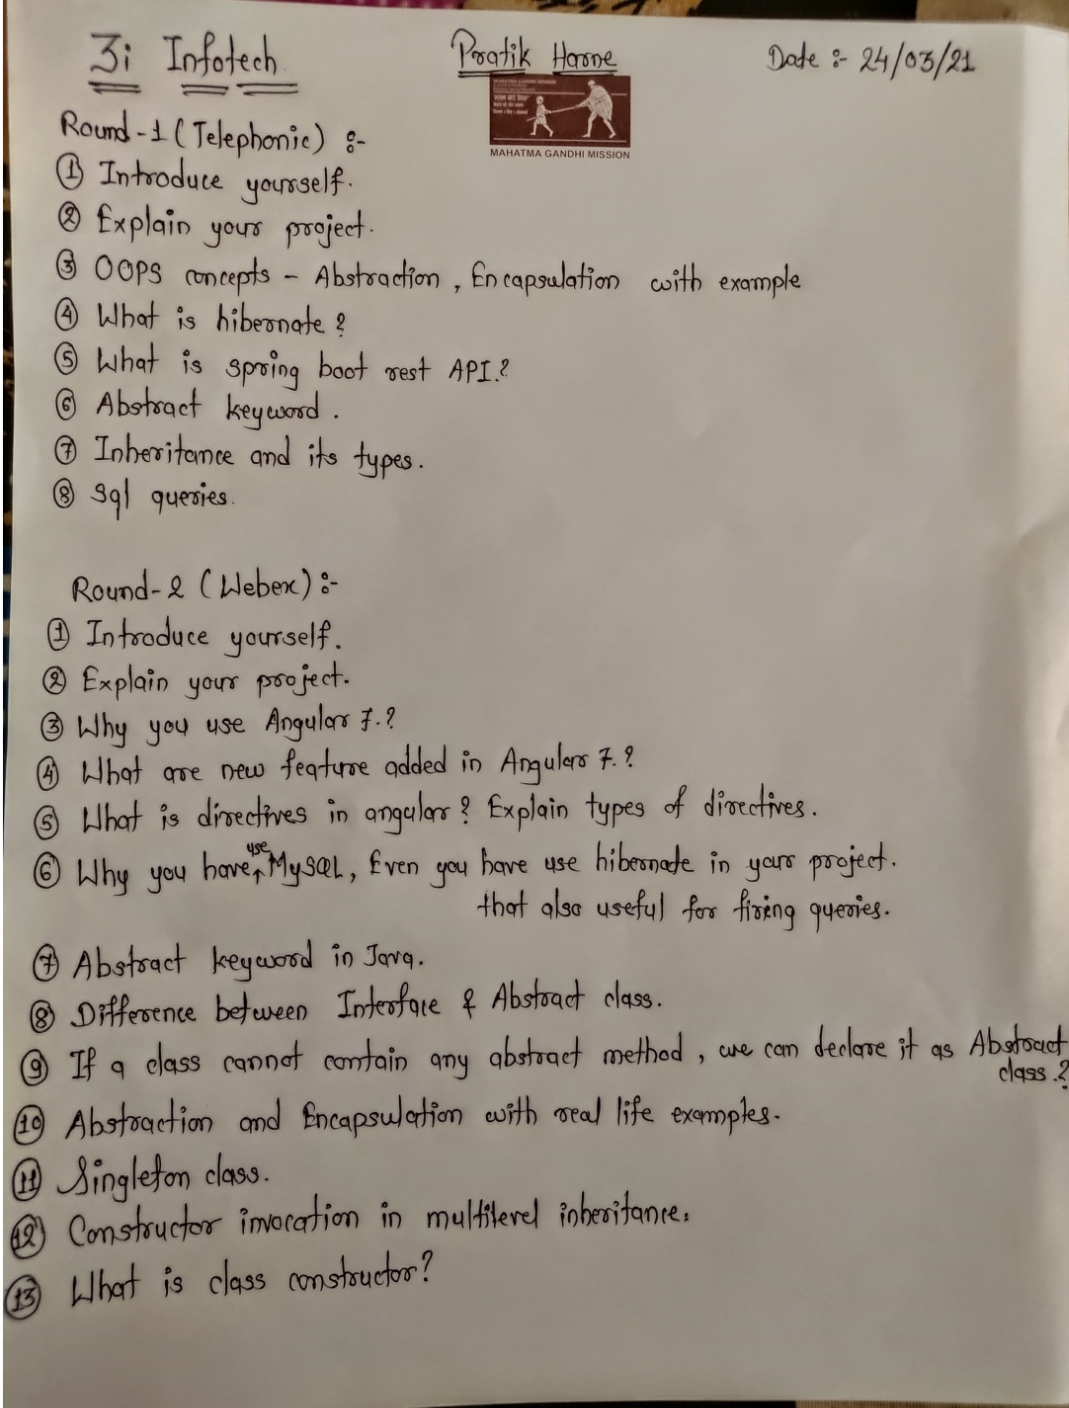 3i Infotech Pratik Harne Date :- 24/03/21
MAHATMA GANDHI MISSION
Round-1 (Telephonic) :-
① Introduce yourself.
② Explain your project.
③ OOPS concepts - Abstraction, Encapsulation with example
④ What is hibernate?
⑤ What is spring boot rest API.?
⑥ Abstract keyword.
⑦ Inheritance and its types.
⑧ Sql queries.
Round-2 (Webex) :-
① Introduce yourself.
② Explain your project.
③ Why you use Angular 7.?
④ What are new feature added in Angular 7.?
⑤ What is directives in angular? Explain types of directives.
⑥ Why you have use MySQL, Even you have use hibernate in your project.
that also useful for firing queries.
⑦ Abstract keyword in Java.
⑧ Difference between Interface & Abstract class.
⑨ If a class cannot contain any abstract method, we can declare it as Abstract
class.?
⑩ Abstraction and Encapsulation with real life examples.
⑪ Singleton class.
⑫ Constructor invocation in multilevel inheritance.
⑬ What is class constructor?